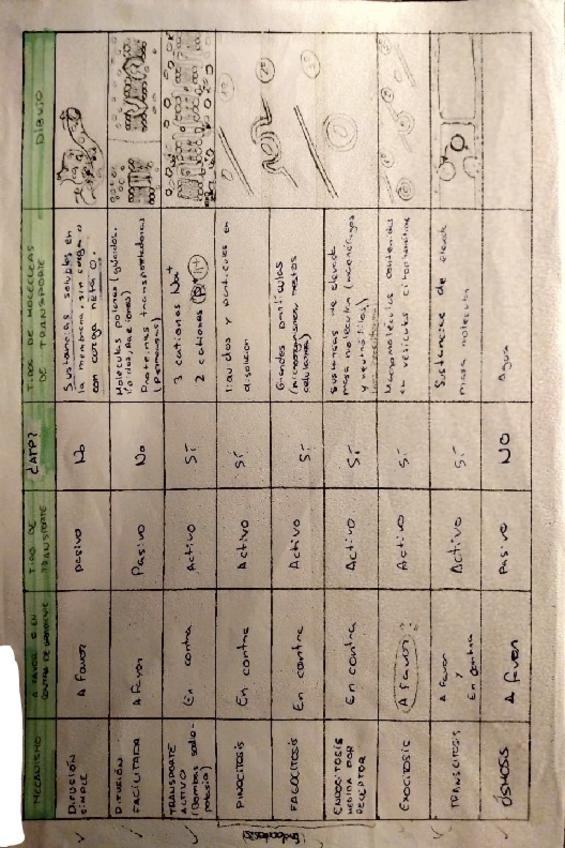 MECANISMO
A FAVOR O EN
CONTRA DE GRADIENTE
TIPO DE
TRANSPORTE
¿ATP?
TIPOS DE MOLÉCULAS
DE TRANSPORTE
DIBUJO
DIFUSIÓN
SIMPLE
A favor
pasivo
No
Sustancias solubles en
la membrana, sin carga o
con carga neta 0.
DIFUSIÓN
FACILITADA
A favor
Pasivo
No
Moléculas polares (glúcidos,
Proteínas transportadoras
(Permeasas)
TRANSPORTE
ACTIVO
(Bombas sodio-
potasio)
En contra
Activo
Sí
3 cationes Na+
2 cationes
PINOCITOSIS
En contra
Activo
Sí
líquidos y partículas en
disolución
FAGOCITOSIS
En contra
Activo
Sí
Grandes partículas
(microorganismos, restos
celulares)
ENDOCITOSIS
MEDIDA POR
RECEPTOR
En contra
Activo
Sí
Sustancias de elevada
masa molecular (macrófagos
y neutrófilos)
EXOCITOSIS
(A favor?)
Activo
Sí
Macromoléculas contenidas
en vesículas citoplasmáticas
TRANSCITOSIS
A favor
y
En contra
Activo
Sí
Sustancias de elevada
masa molecular
ÓSMOSIS
A favor
Pasivo
NO
Agua
Endocitosis